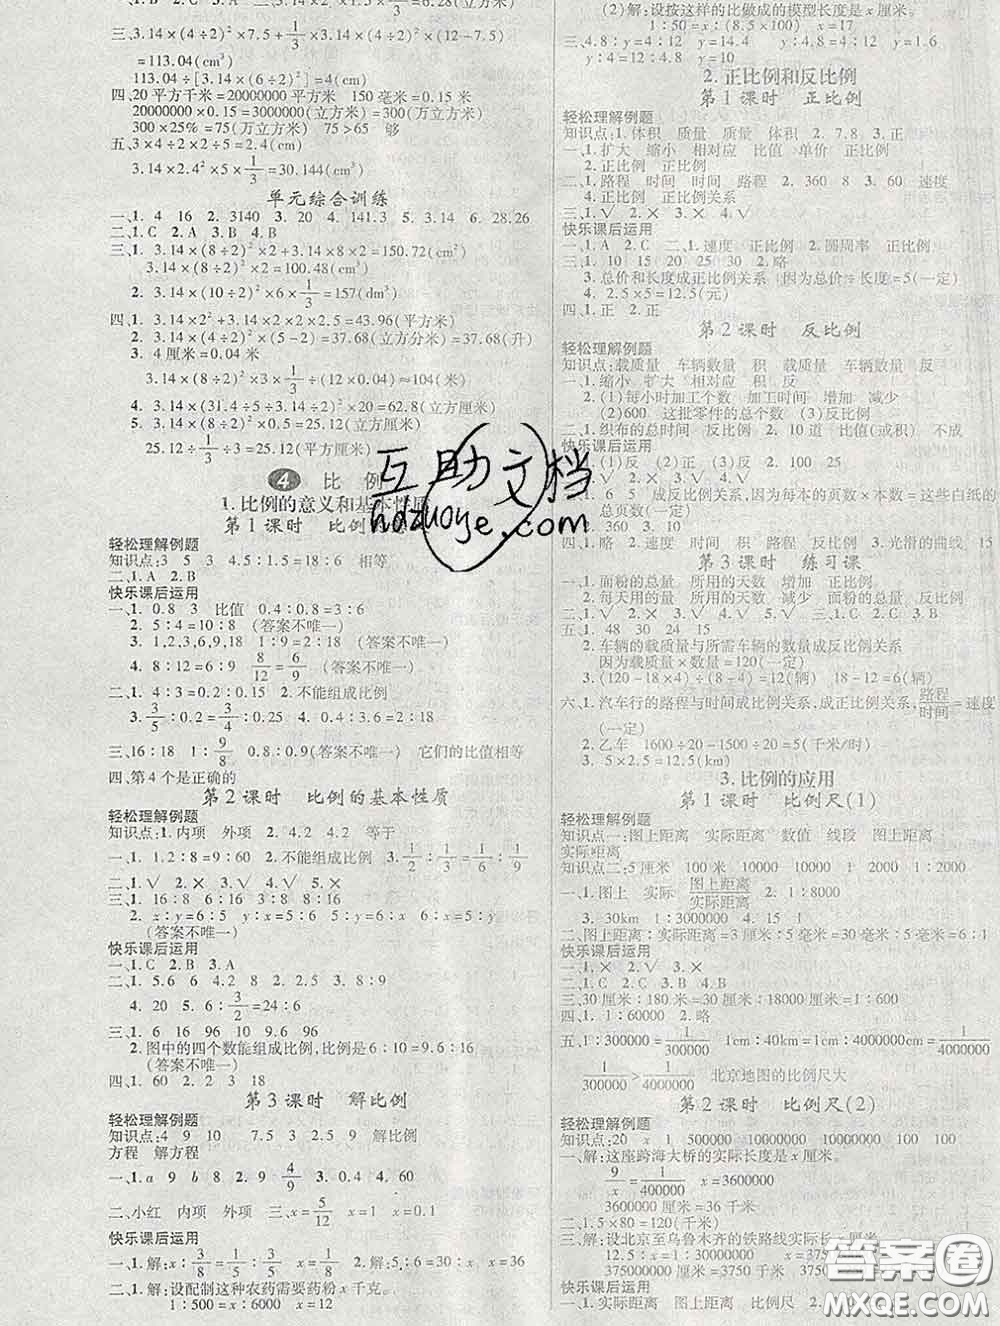 三、3.14×(4÷2)²×7.5+1/3×3.14×(4÷2)²×(12-7.5)
=113.04(cm³)
113.04÷[3.14×(6÷2)²]=4(cm)
四、20平方千米=20000000平方米 150毫米=0.15米
20000000×0.15=3000000(立方米)=300(万立方米)
300×25%=75(万立方米) 75>65 够
五、3×4÷2×2÷5=2.4(cm)
3.14×2.4²×5×1/3=30.144(cm³)
单元综合训练
一、1. 4 16 2. 3140 3. 20 4. 141.3 5. 3.14 6. 28.26
二、1. C 2. A 3. B 4. B
三、1. 3.14×(8÷2)²×2+3.14×8×2=150.72(cm²)
3.14×(8÷2)²×2=100.48(cm³)
2. 3.14×(10÷2)²×6×1/3=157(dm³)
四、1. 3.14×2²+3.14×2×2×2.5=43.96(平方米)
2. 3.14×(4÷2)²×(5-2)=37.68(立方分米)=37.68(升)
3. 4厘米=0.04米
4. 3.14×(31.4÷5÷3.14÷2)²×20=62.8(立方厘米)
5. 3.14×(4÷2)²×2=25.12(立方厘米)
25.12÷1/3÷3=25.12(平方厘米)
4 比 例
1.比例的意义和基本性质
第1课时 比例
轻松理解例题
知识点:3 5 3 4.5∶1.5=18∶6 相等
二、1. A 2. B
快乐课后运用
一、1. 0.8 3 比值 0.4∶0.8=3∶6
2. 5∶4=10∶8 (答案不唯一)
3. 1,2,3,6,9,18 1∶9=2∶18 (答案不唯一)
4. 8∶12=6∶9 8/12=6/9 (答案不唯一)
二、1. 4∶3=12∶9 2.不能组成比例
3. 3/5∶0.2=3/4∶0.25 4. 0.3∶0.2=24∶16
三、16∶18 1∶9/8 0.8∶0.9(答案不唯一) 它们的比值相等
四、第4个是正确的
第2课时 比例的基本性质
轻松理解例题
知识点:1.内项 外项 2. 4.2 4.2 等于
一、1. 1.2∶8=9∶60 2.不能组成比例 3. 1/2∶1/3=1/6∶1/9
二、1. √ 2. × 3. × 4. √
三、1. 16∶8 6∶16 3∶8 6∶16
2. x∶y=6∶5 x∶y=5∶6 5∶6=y∶x 6∶5=x∶y
(答案不唯一)
快乐课后运用
一、1. C 2. B 3. A
二、1. 5.6 6 2. 4.5 0.6 3. 8∶9
4. 20 5. 6∶3/2=24∶6
三、1. 6 16 96 10 96
2.图中的四个数能组成比例,比例是6∶10=9.6∶16
(答案不唯一)
四、1. 60 2. 2 3 18
第3课时 解比例
轻松理解例题
知识点:4 9 10 7.5 3 2.5 9 解比例
方程 解方程
一、1. a 9 b 8 2. 9 4/9 3. 0.6 4. 1
二、小红 内项 外项 三、x=5/12 x=1 x=0.1
快乐课后运用
一、1.解:x∶3/8=1/5∶3/5 x=1/8 2.解:x∶30=6∶5 x=36
二、1.解:设配制这种农药需要药粉x千克。
1∶500=x∶6000 x=12
(2)解:设按这样的比做成的模型长度是x厘米。
1∶50=x∶(8.5×100) x=17
三、4.8∶y=4∶12 y=14.4 y∶4.8=12∶4 y=14.4
y∶4.8=4∶12 y=1.6
2.正比例和反比例
第1课时 正比例
轻松理解例题
知识点:1.体积 质量 质量 体积 2. 7.8 3.正
一、1.扩大 缩小 相对应 比值 单价 正比例
2.正比例 正比例
二、1.路程 时间 时间 路程 2. 360 8 3. 60 速度
4.正比例 正比例关系
三、1. √ 2. × 3. × 4. √
快乐课后运用
一、1. A 2. C 二、1.速度 正比例 2.圆周率 正比例
三、1. 10 15 20 25 30 2.略
3.总价和长度成正比例关系 因为总价÷长度=5(一定)
4. 2.5×5=12.5(元)
四、1.正 2.正
第2课时 反比例
轻松理解例题
知识点:载质量 车辆数量 积 载质量 车辆数量 反
一、1.缩小 扩大 相对应 积 反
2.(1)每小时加工个数 加工时间 增加 减少
(2)600 这批零件的总个数 (3)反比例
二、1.织布的总时间 反比例 2. 10道 比值(或积) 不成
快乐课后运用
一、(1)反 (2)正 (3)反 二、2. 100 25
三、1. 6 5 成反比例关系,因为每本的页数×本数=这些白纸的
总页数(一定)
2. 360 3. 10
四、1.略 2.速度 时间 积 路程 反比例 3.光滑的曲线 15
第3课时 练习课
一、1.面粉的总量 所用的天数 增加 正比例
2.每天用的量 所用的天数 减少 面粉的总量 反比例
五、1. 48 30 24 15
2.车辆的载质量与所需车辆的数量成反比例关系
因为载质量×数量=120(一定)
3. (120-18×6)÷(8-6)=6(辆) 12+6=18(辆)
六、1.汽车行的路程与时间成比例关系,成正比例关系,路程/时间=速度
(一定)
2.乙车 1600÷20-1500÷20=5(千米/时)
3.比例的应用
第1课时 比例尺(1)
轻松理解例题
知识点一:图上距离 实际距离 数值 线段 图上距离
实际距离
知识点二:5厘米 100米 10000 10000 1 2000 1∶2000
一、1.图上 实际 图上距离/实际距离 2. 1∶8000
3. 30km 1∶3000000 4. 15 1
二、图上距离∶实际距离=3厘米∶5毫米=30毫米∶5毫米=6∶1
快乐课后运用
一、1. × 2. √ 3. × 4. √
三、30厘米∶180米=30厘米∶18000厘米=1∶600
四、1. 1∶60000 2.略
五、1∶300000=1/300000 1cm∶40km=1cm∶4000000cm=1/4000000
1/300000>1/4000000 北京地图的比例尺大
第2课时 比例尺(2)
轻松理解例题
知识点:20 x 1 500000 10000000 10000000 100 100
一、解:设这座跨海大桥的实际长度是x厘米。
9/x=1/400000 x=3600000
3600000厘米=36千米
二、1. 1.5×80=120(千米)
2.解:设北京至乌鲁木齐的铁路线实际长x厘米。
快乐课后运用
一、1.实际距离 图上距离 比例尺
互助文档
hdzuoye.com
答案圈
MXQE.COM